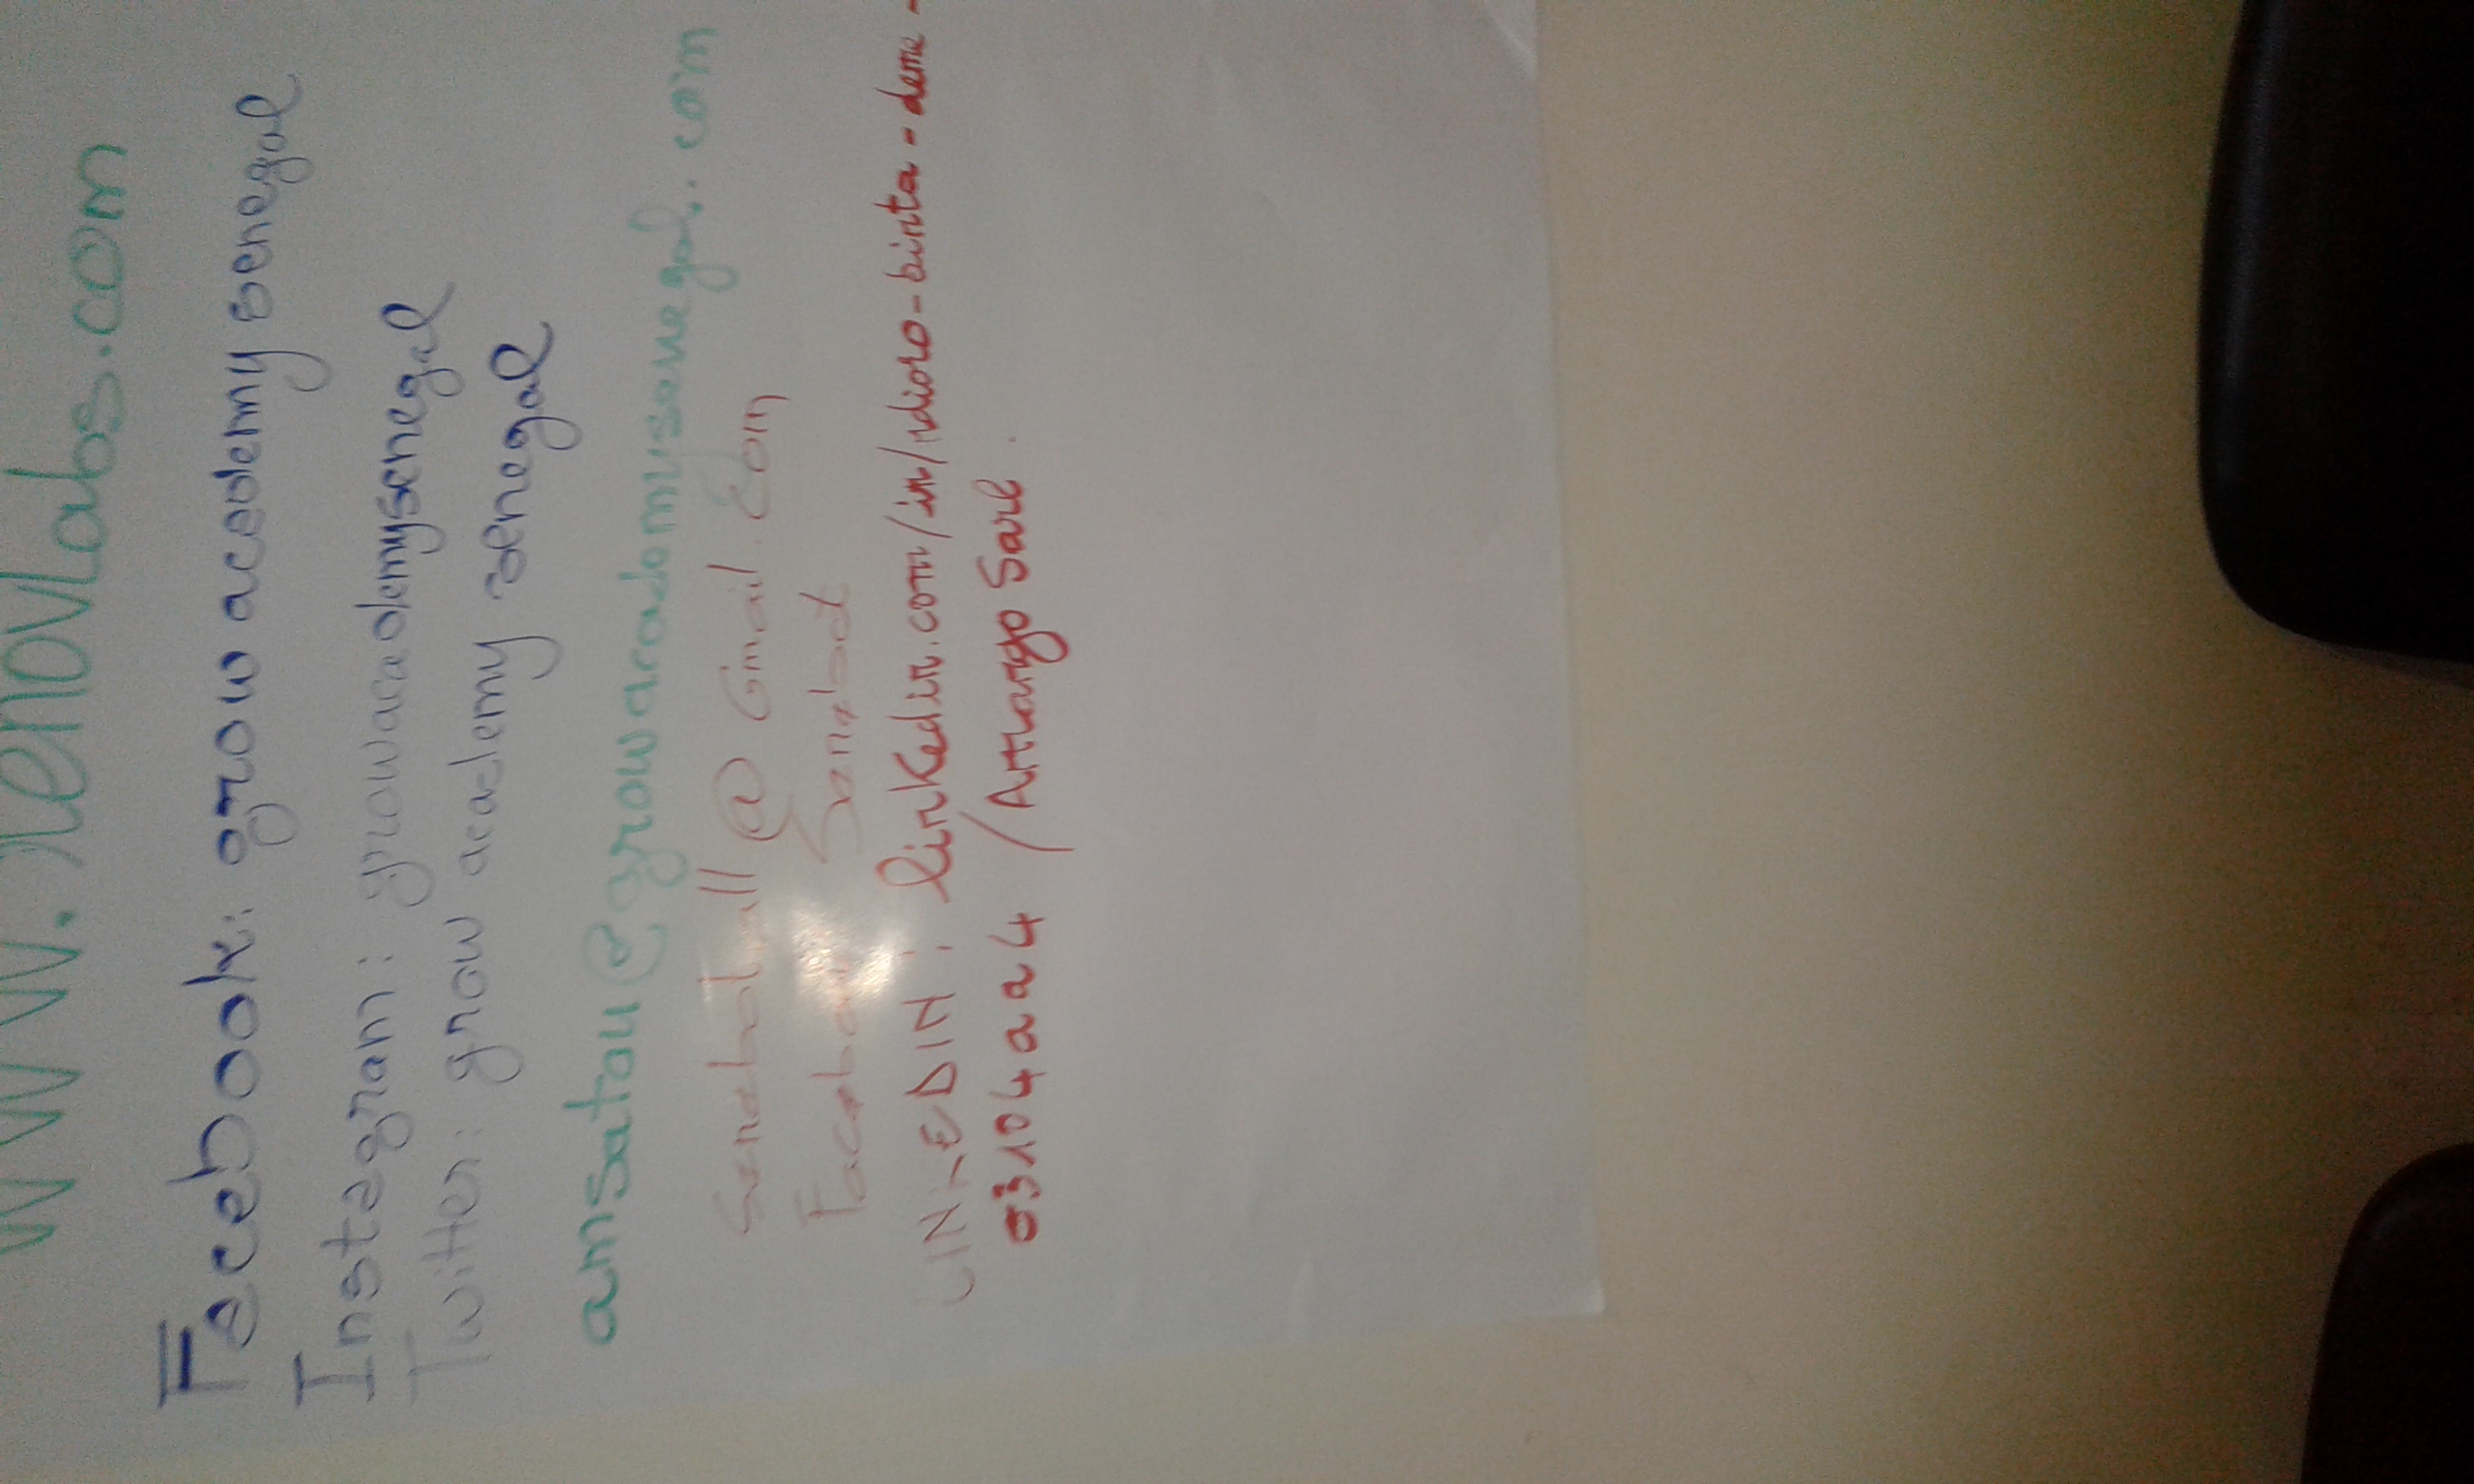 www.renovlabs.com
Facebook: grow academy senegal
Instagram: growacademysenegal
Twitter: grow academy senegal
amsatou@growacademysenegal.com
@ Gmail.com
Facebook Senebot
LINKEDIN: linkedin.com/in/ndioro-binta-deme-
03104aa4 / Sarl.